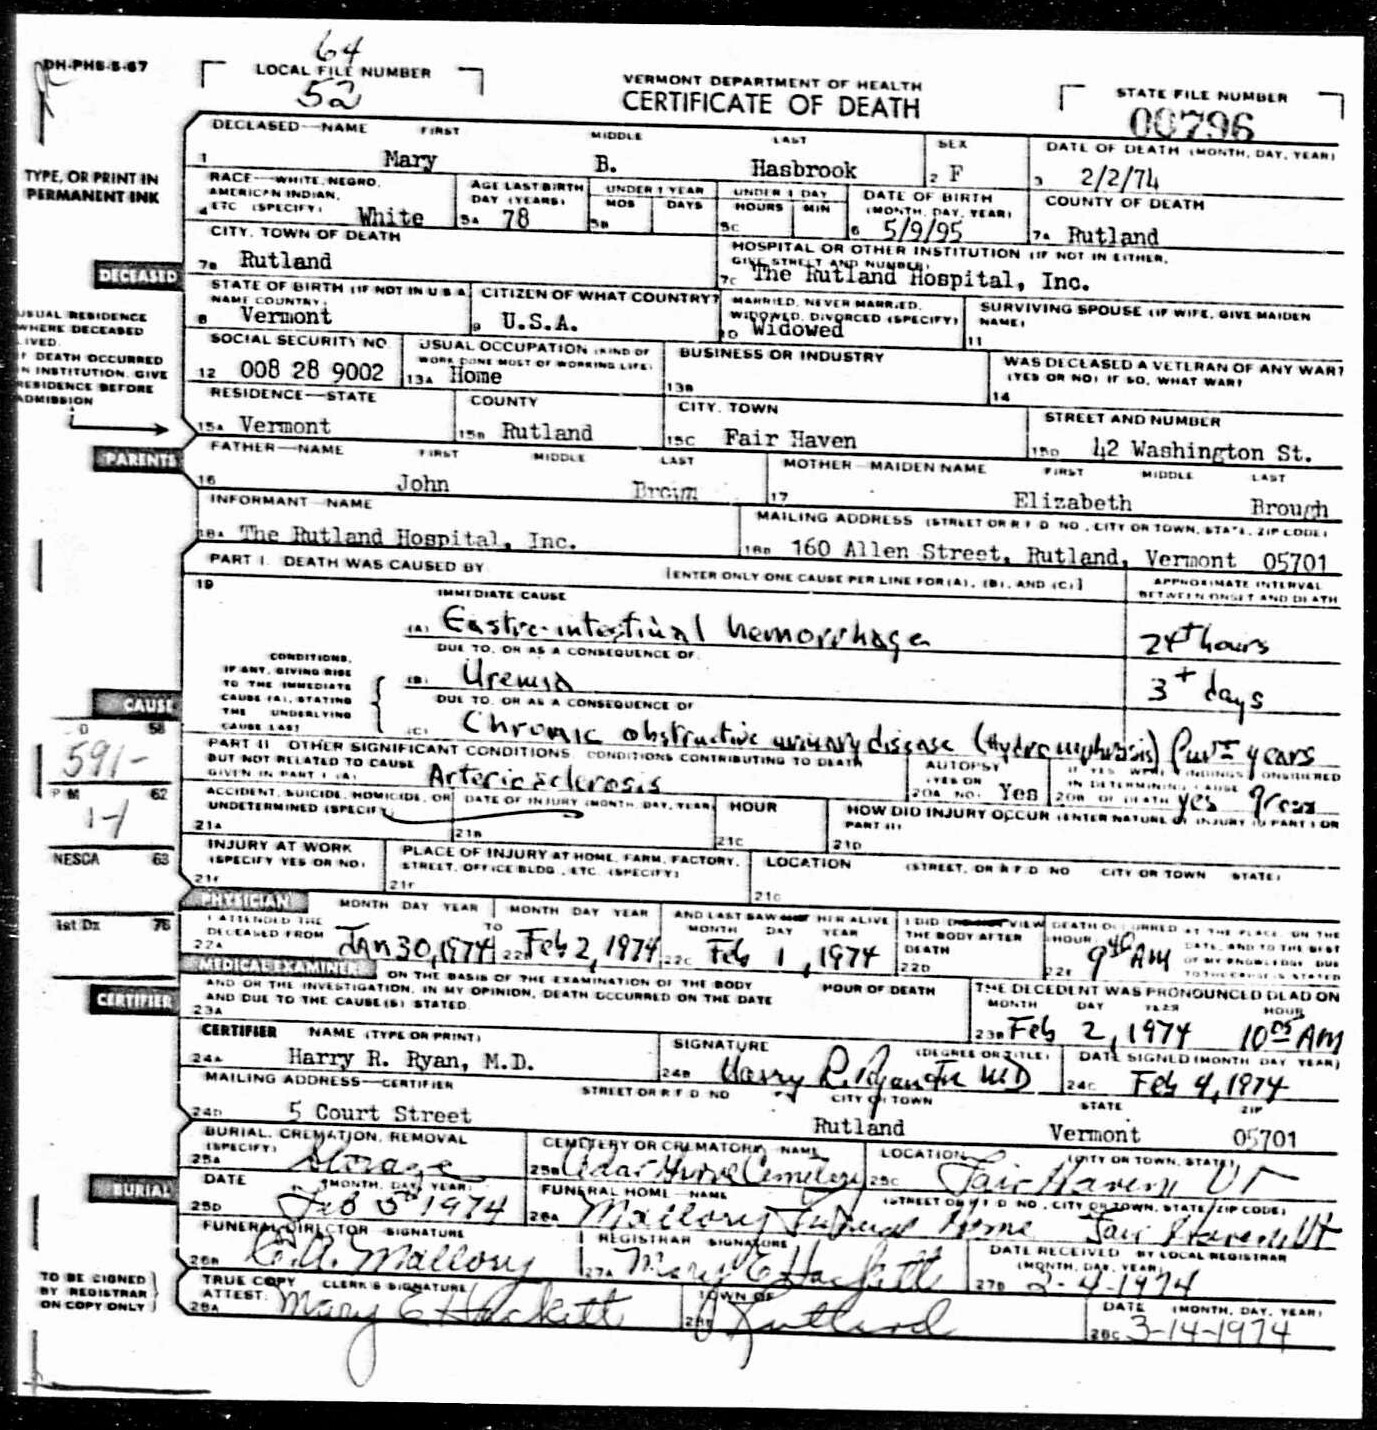 DH-PHS-5-67
64
LOCAL FILE NUMBER
52
VERMONT DEPARTMENT OF HEALTH
CERTIFICATE OF DEATH
STATE FILE NUMBER
00796
TYPE, OR PRINT IN
PERMANENT INK
DECEASED—NAME FIRST MIDDLE LAST
1 Mary B. Hasbrook
SEX
2 F
DATE OF DEATH (MONTH, DAY, YEAR)
3 2/2/74
RACE—WHITE, NEGRO,
AMERICAN INDIAN,
ETC (SPECIFY)
4 White
AGE LAST BIRTH
DAY (YEARS)
5A 78
UNDER 1 YEAR
MOS DAYS
5B
UNDER 1 DAY
HOURS MIN
5C
DATE OF BIRTH
(MONTH, DAY, YEAR)
6 5/9/95
COUNTY OF DEATH
7A Rutland
CITY, TOWN OF DEATH
7B Rutland
HOSPITAL OR OTHER INSTITUTION (IF NOT IN EITHER,
GIVE STREET AND NUMBER)
7C The Rutland Hospital, Inc.
DECEASED
STATE OF BIRTH (IF NOT IN U S A
NAME COUNTRY)
8 Vermont
CITIZEN OF WHAT COUNTRY?
9 U.S.A.
MARRIED, NEVER MARRIED,
WIDOWED, DIVORCED (SPECIFY)
10 Widowed
SURVIVING SPOUSE (IF WIFE, GIVE MAIDEN
NAME)
11
USUAL RESIDENCE
WHERE DECEASED
LIVED.
IF DEATH OCCURRED
IN INSTITUTION, GIVE
RESIDENCE BEFORE
ADMISSION
SOCIAL SECURITY NO
12 008 28 9002
USUAL OCCUPATION (KIND OF
WORK DONE MOST OF WORKING LIFE)
13A Home
BUSINESS OR INDUSTRY
13B
WAS DECEASED A VETERAN OF ANY WAR?
(YES OR NO) IF SO, WHAT WAR?
14
RESIDENCE—STATE
15A Vermont
COUNTY
15B Rutland
CITY, TOWN
15C Fair Haven
STREET AND NUMBER
15D 42 Washington St.
PARENTS
FATHER—NAME FIRST MIDDLE LAST
16 John Brown
MOTHER—MAIDEN NAME FIRST MIDDLE LAST
17 Elizabeth Brough
INFORMANT—NAME
18A The Rutland Hospital, Inc.
MAILING ADDRESS (STREET OR R F D NO., CITY OR TOWN, STATE, ZIP CODE)
18B 160 Allen Street, Rutland, Vermont 05701
PART I. DEATH WAS CAUSED BY [ENTER ONLY ONE CAUSE PER LINE FOR (A), (B), AND (C)]
APPROXIMATE INTERVAL
BETWEEN ONSET AND DEATH
19
IMMEDIATE CAUSE
(A) Gastro-intestinal hemorrhage 24+ hours
DUE TO, OR AS A CONSEQUENCE OF
CONDITIONS,
IF ANY, GIVING RISE
TO THE IMMEDIATE
CAUSE (A), STATING
THE UNDERLYING
CAUSE LAST
(B) Uremia 3+ days
DUE TO, OR AS A CONSEQUENCE OF
(C) Chronic obstructive urinary disease (Hydronephrosis) years
CAUSE
O 58
591-
P M 62
1-1
NESCA 63
1st Dx 76
PART II OTHER SIGNIFICANT CONDITIONS CONDITIONS CONTRIBUTING TO DEATH
BUT NOT RELATED TO CAUSE
GIVEN IN PART I (A)
Arteriosclerosis
AUTOPSY
(YES OR
20A NO) Yes
IF YES WERE FINDINGS CONSIDERED
IN DETERMINING CAUSE
20B OF DEATH yes gross
ACCIDENT, SUICIDE, HOMICIDE, OR
UNDETERMINED (SPECIFY)
21A
DATE OF INJURY (MONTH, DAY, YEAR)
21B
HOUR
21C
HOW DID INJURY OCCUR (ENTER NATURE OF INJURY IN PART I OR
PART II)
21D
INJURY AT WORK
(SPECIFY YES OR NO)
PLACE OF INJURY AT HOME, FARM, FACTORY,
STREET, OFFICE BLDG., ETC. (SPECIFY)
21F
LOCATION (STREET, OR R F D NO CITY OR TOWN STATE)
PHYSICIAN
I ATTENDED THE
DECEASED FROM
22A
MONTH DAY YEAR
JAN 30, 1974
TO
MONTH DAY YEAR
Feb 2, 1974
AND LAST SAW HER ALIVE
MONTH DAY YEAR
22C Feb 1, 1974
I DID VIEW
THE BODY AFTER
DEATH
22D
DEATH OCCURRED AT THE PLACE, ON THE
DATE, AND TO THE BEST
OF MY KNOWLEDGE DUE
TO THE CAUSE(S) STATED
HOUR
22E AM
CERTIFIER
MEDICAL EXAMINER
ON THE BASIS OF THE EXAMINATION OF THE BODY
AND OR THE INVESTIGATION, IN MY OPINION, DEATH OCCURRED ON THE DATE
AND DUE TO THE CAUSE(S) STATED.
23A
HOUR OF DEATH
THE DECEDENT WAS PRONOUNCED DEAD ON
MONTH DAY YEAR HOUR
23B Feb 2, 1974 10 05 AM
CERTIFIER NAME (TYPE OR PRINT)
24A Harry R. Ryan, M.D.
SIGNATURE (DEGREE OR TITLE)
24B Harry R. Ryan Jr MD
DATE SIGNED (MONTH DAY YEAR)
24C Feb 4, 1974
MAILING ADDRESS—CERTIFIER STREET OR R F D NO CITY OR TOWN STATE ZIP
24D 5 Court Street Rutland Vermont 05701
BURIAL
BURIAL, CREMATION, REMOVAL
(SPECIFY)
25A Storage
CEMETERY OR CREMATORY NAME
25B Cedar Grove Cemetery
LOCATION (CITY OR TOWN, STATE)
25C Fair Haven Vt
DATE (MONTH, DAY, YEAR)
25D Feb 5th 1974
FUNERAL HOME—NAME (STREET OR R F D NO, CITY OR TOWN, STATE, ZIP CODE)
26A Mallory Funeral Home Fair Haven Vt
FUNERAL DIRECTOR SIGNATURE
26B C. A. Mallory
REGISTRAR SIGNATURE
27A Mary E Hackett
DATE RECEIVED BY LOCAL REGISTRAR
(MONTH, DAY, YEAR)
27B 2-4-1974
TO BE SIGNED
BY REGISTRAR
ON COPY ONLY
TRUE COPY CLERK'S SIGNATURE
ATTEST:
28A Mary E Hackett
TOWN OF
28B Rutland
DATE (MONTH, DAY, YEAR)
28C 3-14-1974